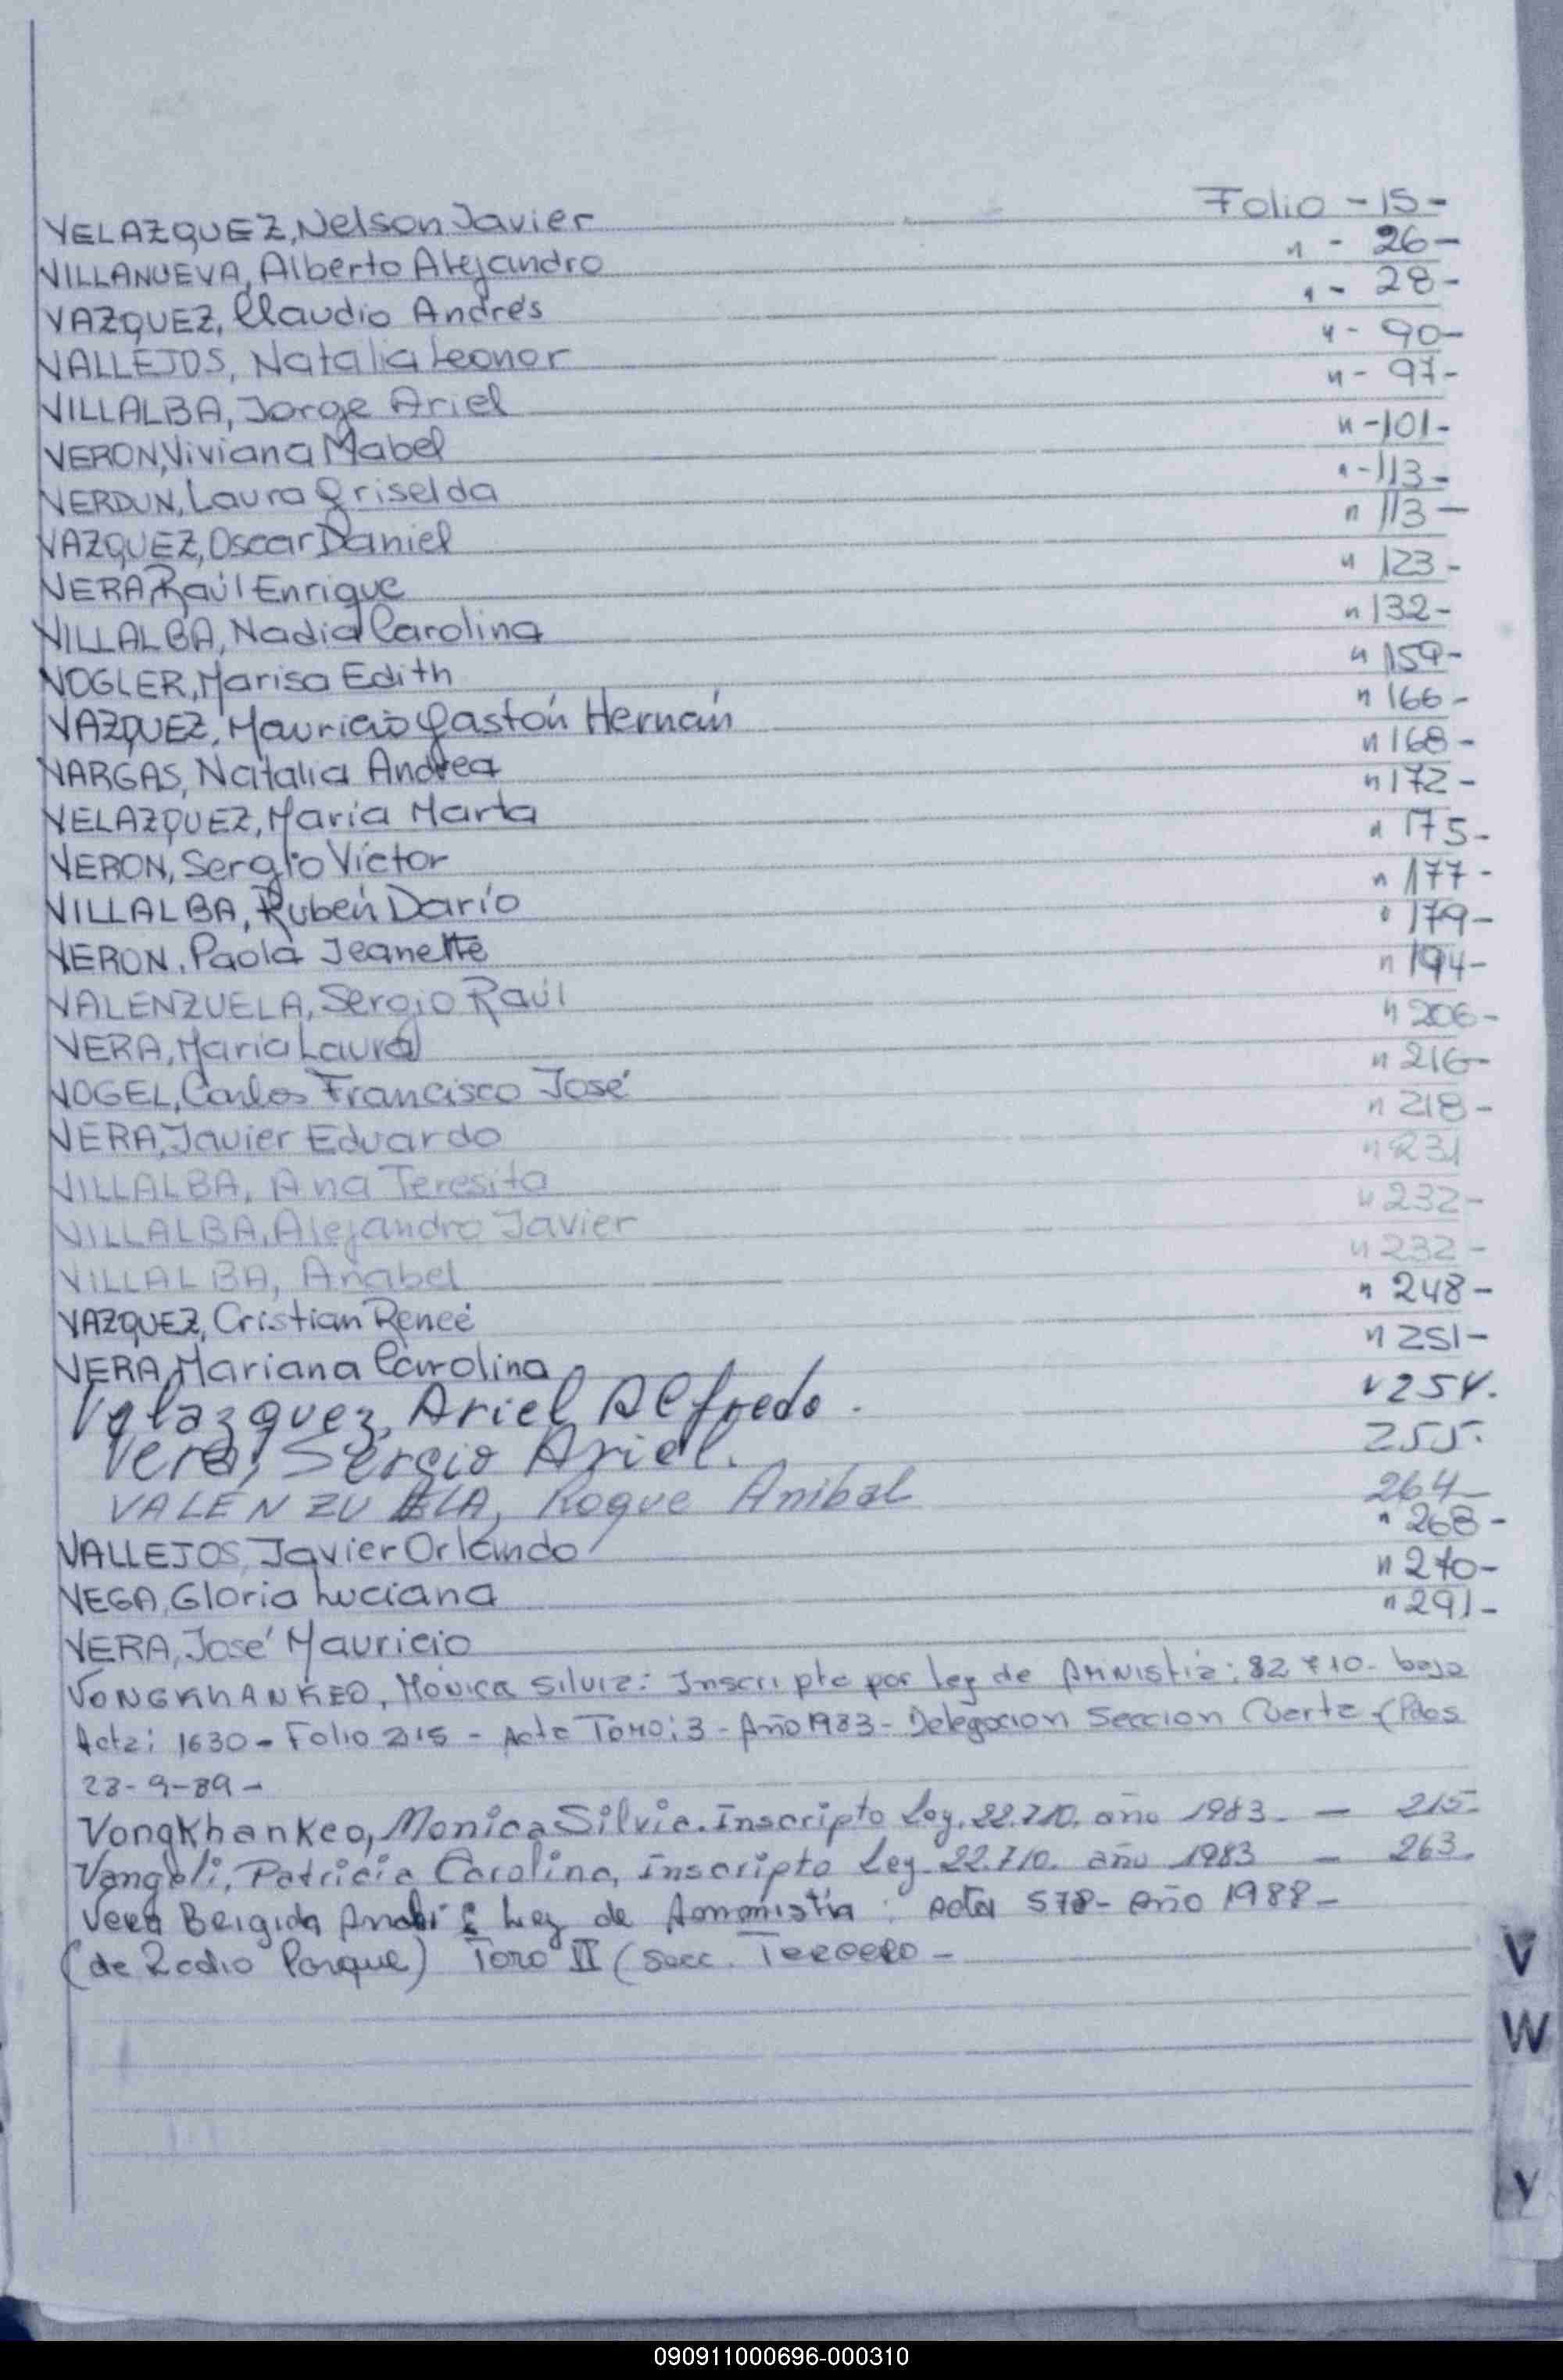 VELAZQUEZ, Nelson Javier Folio - 15 -
VILLANUEVA, Alberto Alejandro " - 26 -
VAZQUEZ, Claudio Andrés " - 28 -
VALLEJOS, Natalia Leonor " - 90 -
VILLALBA, Jorge Ariel " - 97 -
VERON, Viviana Mabel " - 101 -
VERDUN, Laura Griselda " - 113 -
VAZQUEZ, Oscar Daniel " 113 -
VERA, Raúl Enrique " 123 -
VILLALBA, Nadia Carolina " 132 -
VOGLER, Marisa Edith " 159 -
VAZQUEZ, Mauricio Gastón Hernán " 166 -
VARGAS, Natalia Andrea " 168 -
VELAZQUEZ, María Marta " 172 -
VERON, Sergio Víctor " 175 -
VILLALBA, Rubén Darío " 177 -
VERON, Paola Jeanette " 179 -
VALENZUELA, Sergio Raúl " 194 -
VERA, María Laura " 206 -
VOGEL, Carlos Francisco José " 216 -
VERA, Javier Eduardo " 218 -
VILLALBA, Ana Teresita " 231
VILLALBA, Alejandro Javier " 232 -
VILLALBA, Anabel " 232 -
VAZQUEZ, Cristian Reneé " 248 -
VERA, Mariana Carolina " 251 -
Velazquez, Ariel Alfredo. " 254.
Vera, Sergio Ariel. 255.
VALENZUELA, Roque Anibal 264
VALLEJOS, Javier Orlando " 268 -
VEGA, Gloria Luciana " 270 -
VERA, José Mauricio " 291 -
VONGKHANKEO, Mónica Silvia: Inscripta por Ley de Amnistia: 22710 - bajo
Acta: 1630 - Folio 215 - Acta Tomo: 3 - Año 1983 - Delegacion Seccion Cuarta (Pdas
23-9-89 -
VongKhanKeo, Monica Silvia. Inscripto Ley. 22.710. año 1983. — 215.
Vangeli, Patricia Carolina, inscripto Ley. 22.710. año 1983 — 263.
Vera Beigida Anahi Ley de Ammistia: Acta 578 - Año 1988 -
(de Rodio Parque) Tomo II (Secc. Tercero -
V
W
Y
090911000696-000310